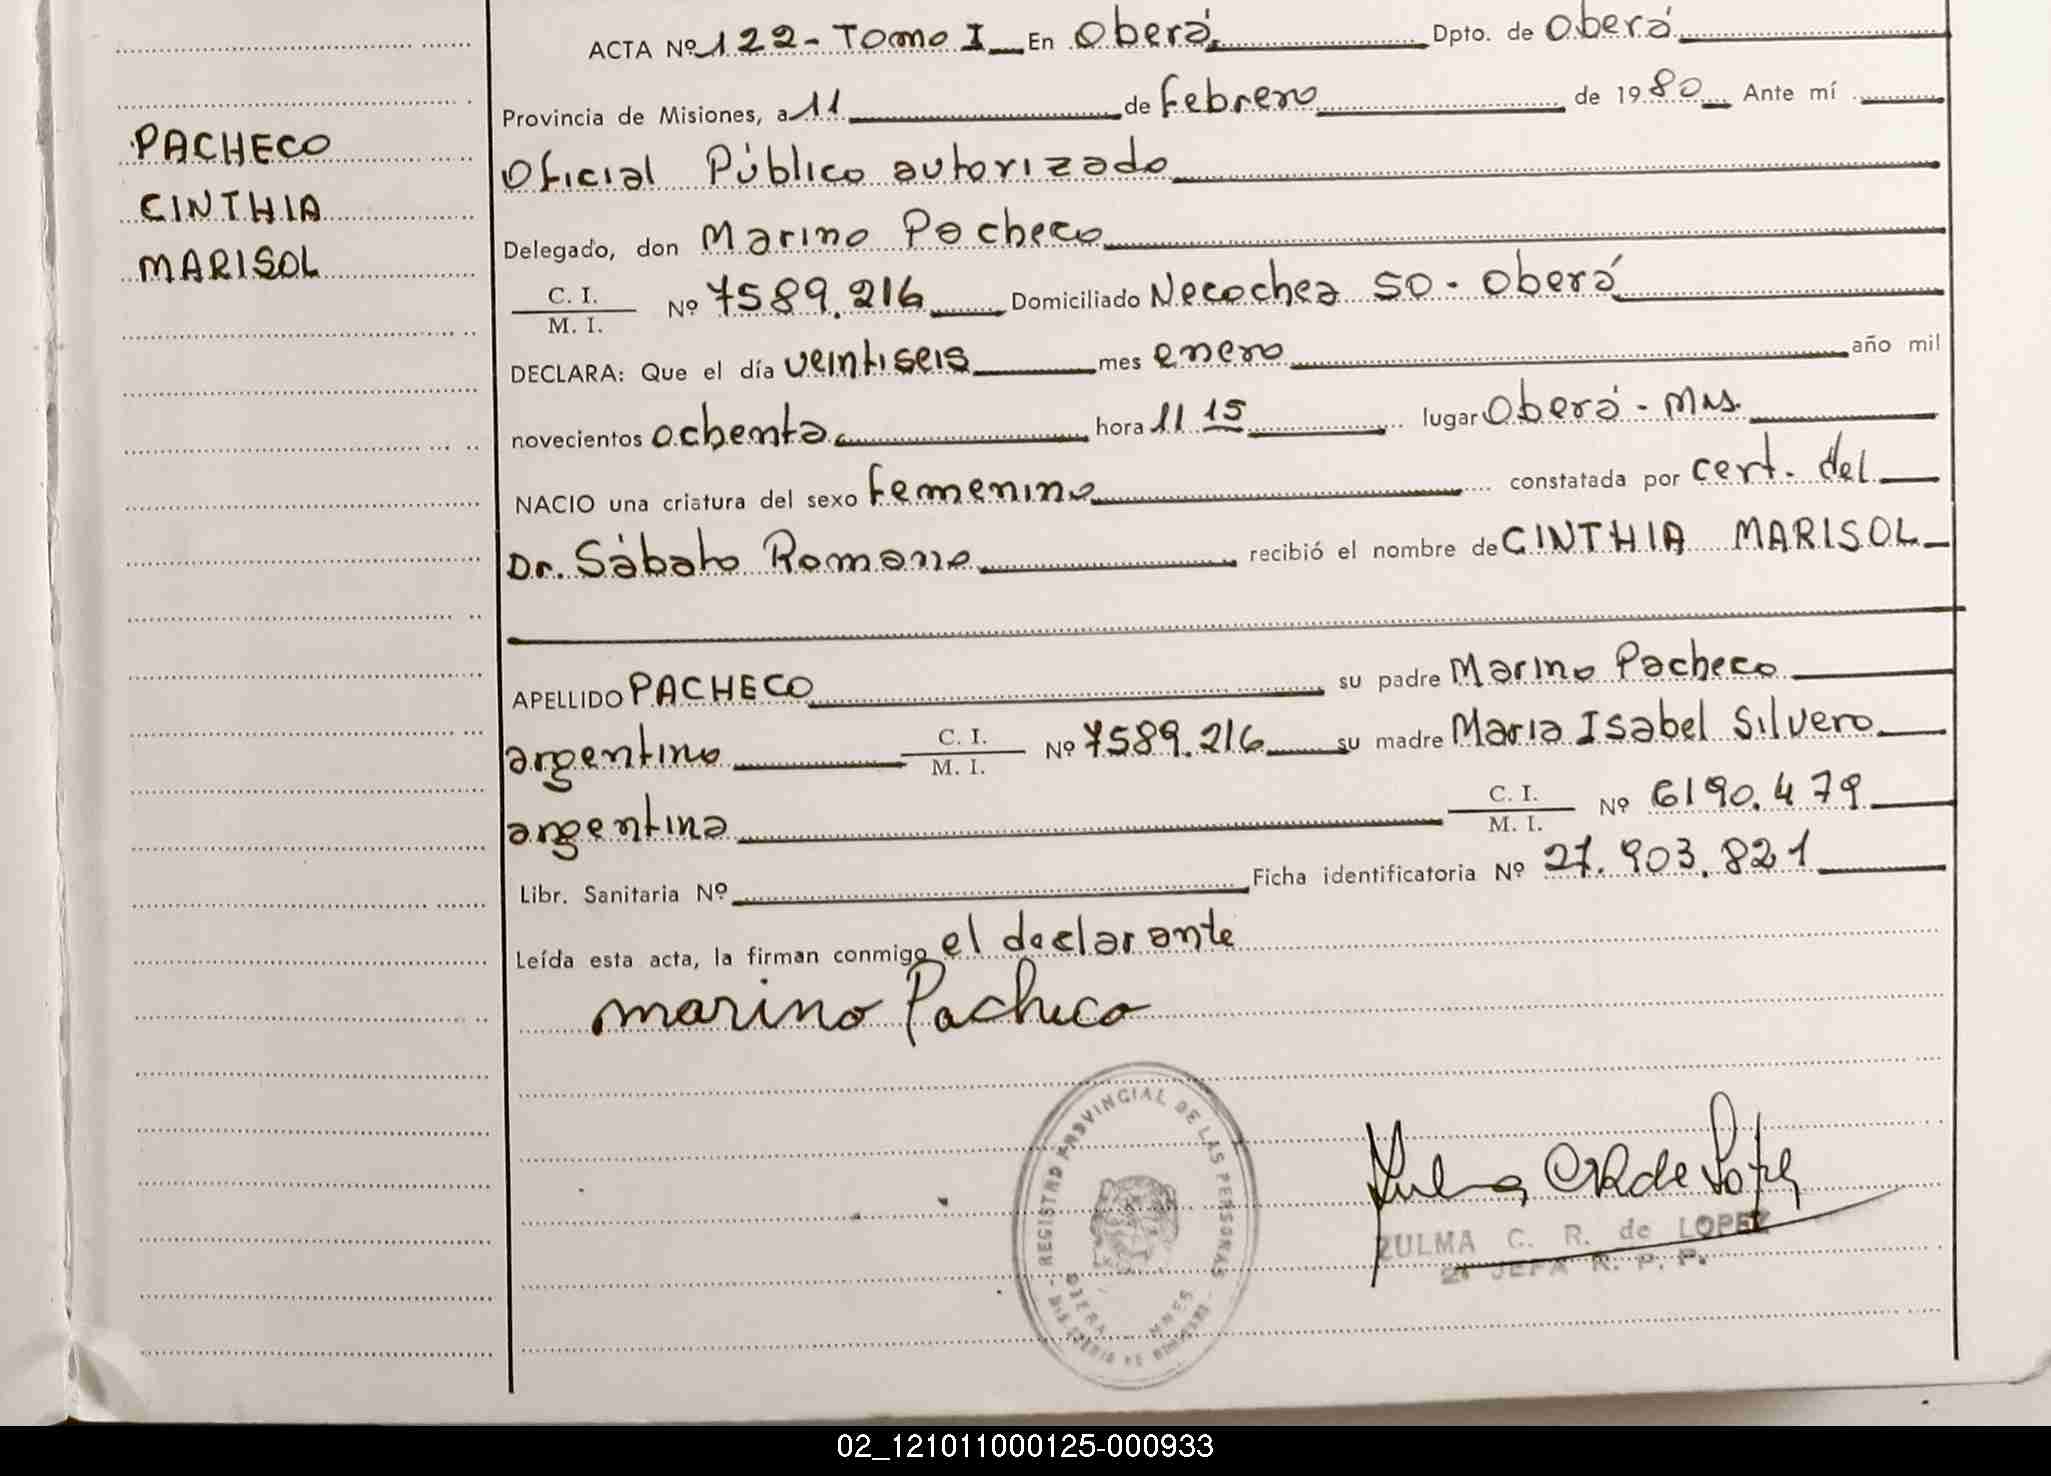 ACTA Nº 122 - Tomo I En Oberá Dpto. de Oberá
Provincia de Misiones, a 11 de Febrero de 1980 Ante mí
PACHECO
Oficial Público autorizado
CINTHIA
Delegado, don Marino Pacheco
MARISOL
C. I. / M. I. Nº 7589.216 Domiciliado Necochea 50 - Oberá
DECLARA: Que el día veintiseis mes enero año mil
novecientos ochenta hora 11 15 lugar Oberá - Mns.
NACIO una criatura del sexo femenino constatada por cert. del
Dr. Sábato Romano recibió el nombre de CINTHIA MARISOL
APELLIDO PACHECO su padre Marino Pacheco
argentino C. I. / M. I. Nº 7589.216 su madre Maria Isabel Silvero
argentina C. I. / M. I. Nº 6190.479
Libr. Sanitaria Nº Ficha identificatoria Nº 27.903.821
Leída esta acta, la firman conmigo el declarante
marino Pacheco
REGISTRO PROVINCIAL DE LAS PERSONAS
OBERA
Zulma CR de López
ZULMA C. R. de LOPEZ
2ª JEFA R. P. P.
02_121011000125-000933